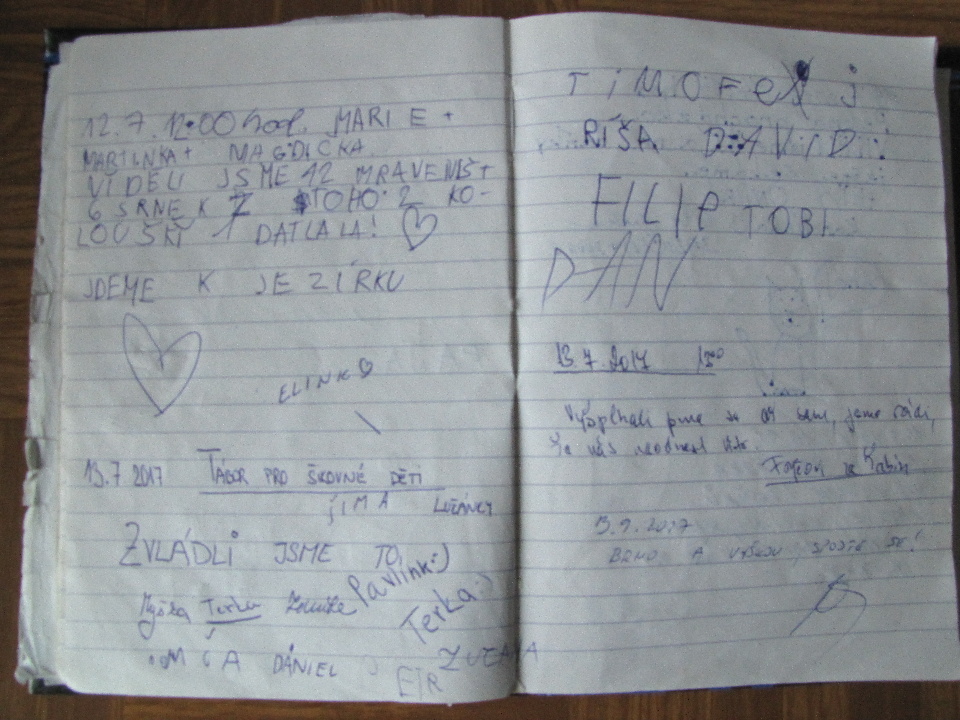 12.7. 12:00 hod. MARIE +
MARTINKA + MAGDIČKA
VIDĚLI JSME 12 MRAVENIŠŤ
6 SRNEK Z TOHO 2 KO-
LOUŠKI 1 DATLALA!
JDEME K JEZÍRKU
ELINK
13.7 2017 TÁBOR PRO ŠKOVNÉ DĚTI
JÍMA LUŽÁNKY
ZVLÁDLI JSME TO,
Pavlink:)
Myška Terka
Terka:)
DÁNIEL
ZUZANA
TiMOFej
RÍŠA DAVID
FILIP TOBI
DAN
13.7.2017 15⁰⁰
Vyšplhali jsme se až sem, jsme rádi,
že nás
3.9.2017
BRNO A VYŠKOV SPOJTE SE!